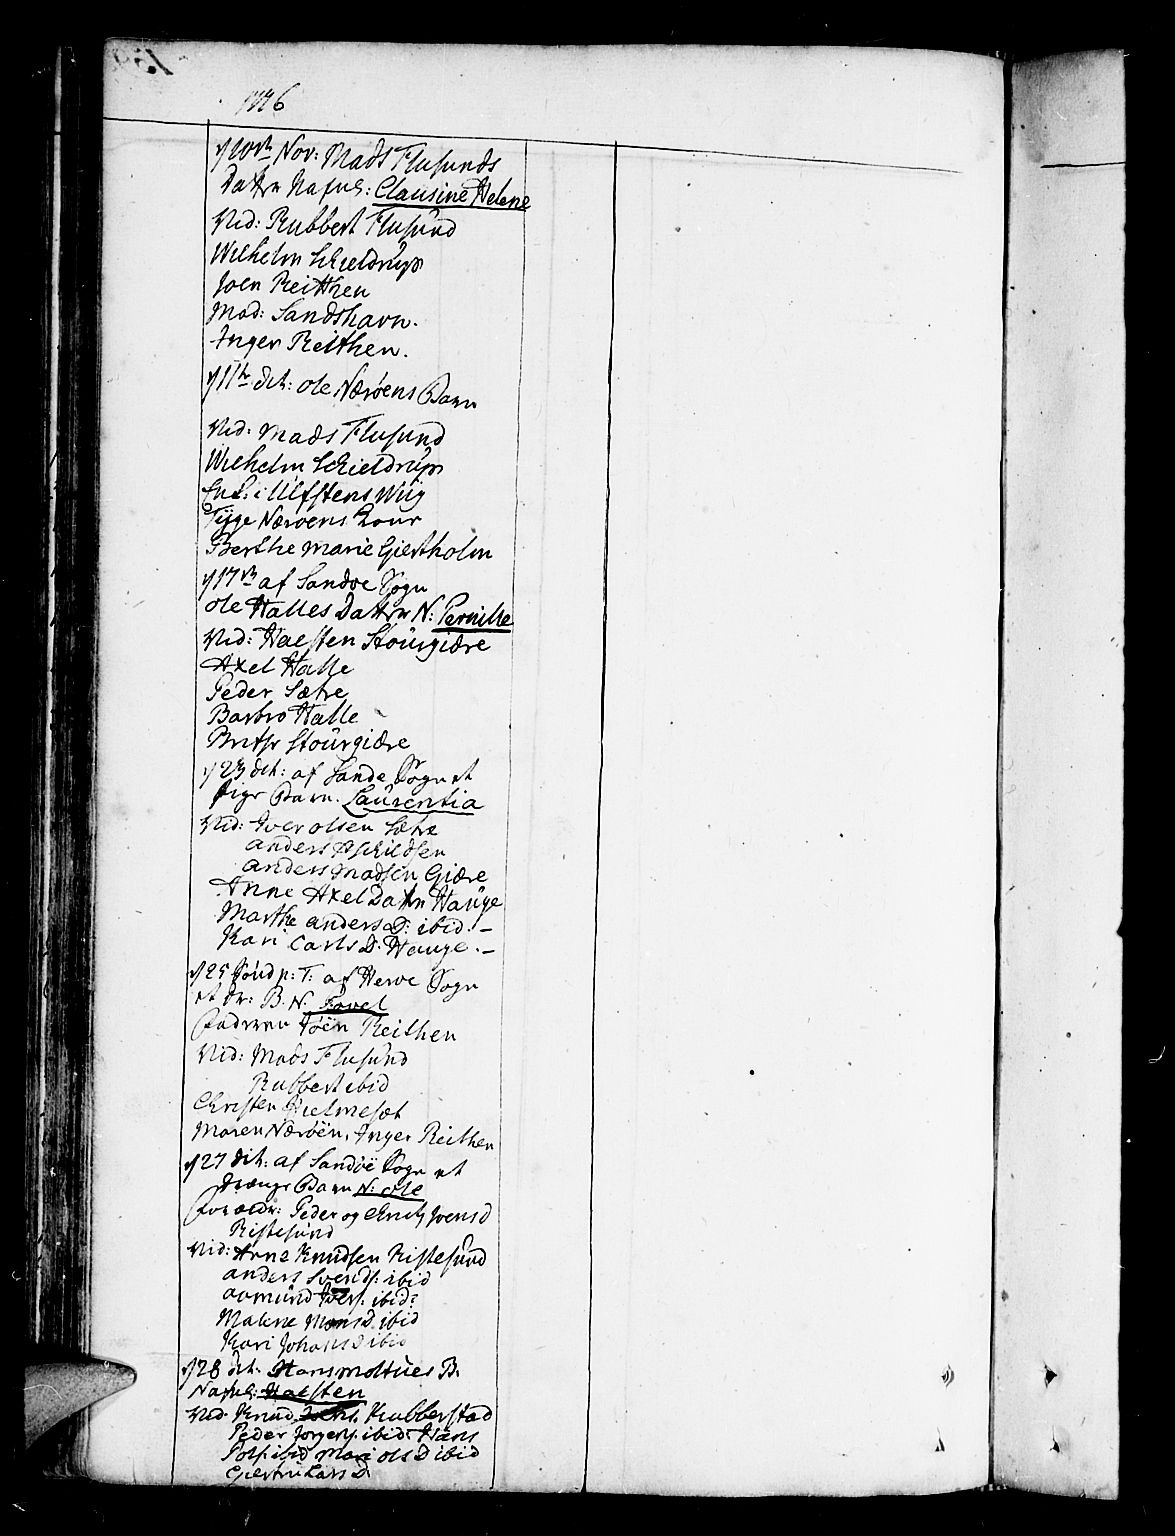 1776
d 10de Nov: Mads Flusunds
Datter Nafnl: Clausine Helene
Vid: Rubbert Flusund
Wilhelm Schieldrup
Joen Reithen
Mad: Sandshavn.
Inger Reithen.
d 11te dit: ole Nærøens Barn
Vid: Mads Flusund
Wilhelm Schieldrup
i Ulfstens Wiig
Tÿge Nærøens Kone
Berthe Marie Giertholm
d 17de af Sandøe Sogn
ole Halles Datter N: Pernille
Vid: Halsten Stourgiære
Axel Halle
Peder Sætre
Barbro Halle
Stourgiære
d 23 dit: af Sande Sogn et
Pige Barn. Laurentia
Vid: Iver olsen Sætre
anders
anders Madsen Giære
Anne Axel Dattr Hauge
Marthe anders D: ibid. -
Kari Carls D: Hauge. -
d 25 Sønd p: T: af Herøe Sogn
et dr: B. N. Povel
Faderen Jöen Reithen
Vid: Mads Flusund
Rubbert ibid
Christen Hielmeset
Maren Nærøen, Inger Reithen
d 27 dit: af Sandøe Sogn et
drænge Barn N: ole
Foræld: Peder og Joensd
Ristesund
Vid: Arne Knudsen Ristesund
anders Svends: ibid
aamund Ivers: ibid:
Malene Mons D. ibid
Kari Johans D ibid
d 28 dit: Hans Moltues B.
Nafnl: Halsten
Vid: Knud Kubberstad
Peder Jørgens: ibid Hans
Pols: ibid Mari ols D ibid
Giertru Lars D